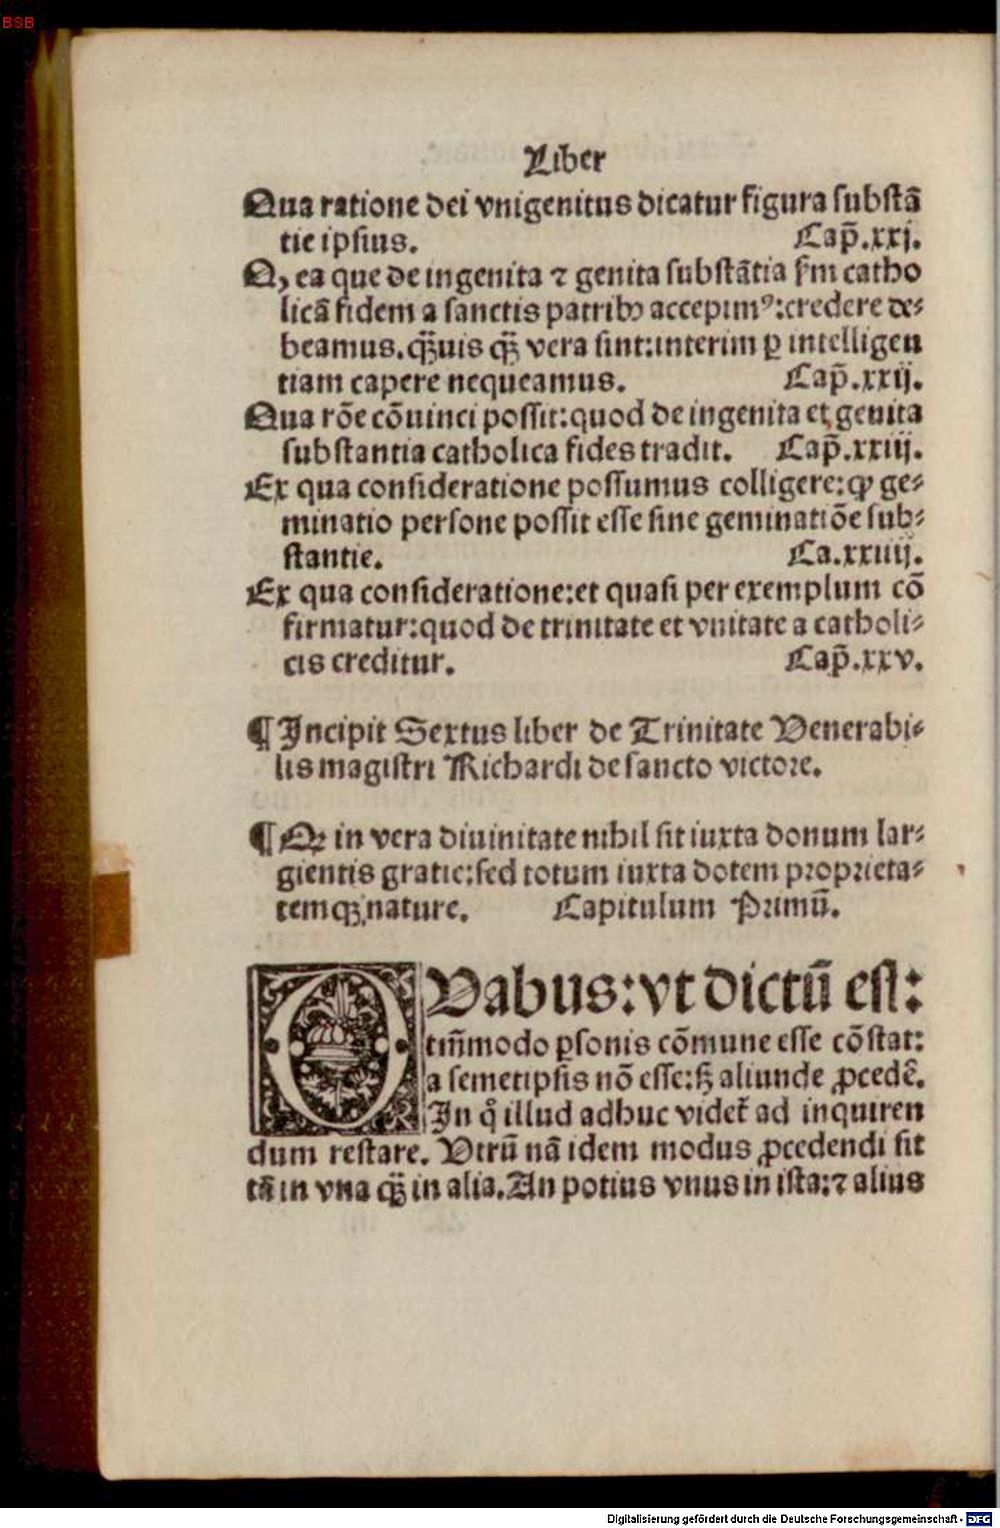 BSB
Liber
Qua ratione dei vnigenitus dicatur figura substā
tie ipsius. Cap̄.xxj.
Q, ea que de ingenita ⁊ genita substātia s̄m catho
licā fidem a sanctis patribꝰ accepimꝰ:credere de-
beamus.qȝ̄uis qȝ̄ vera sint:interim ꝑ intelligen
tiam capere nequeamus. Cap̄.xxij.
Qua rōe cōuinci possit:quod de ingenita et genita
substantia catholica fides tradit. Cap̄.xxiij.
Ex qua consideratione possumus colligere:ꝙ ge-
minatio persone possit esse sine geminatiōe sub-
stantie. Ca.xxiiij.
Ex qua consideratione:et quasi per exemplum cō
firmatur:quod de trinitate et vnitate a catholi-
cis creditur. Cap̄.xxv.
¶ Incipit Sextus liber de Trinitate Venerabi-
lis magistri Richardi de sancto victore.
¶ Qꝫ in vera diuinitate nihil sit iuxta donum lar-
gientis gratie:sed totum iuxta dotem proprieta-
temqȝ nature. Capitulum Primū.
OVabus:vt dictū est:
tm̄modo ꝑsonis cōmune esse cōstat:
a semetipsis nō esse:sȝ aliunde ꝓcedē.
In qͦ illud adhuc videt̄ ad inquiren
dum restare. Vtrū nā idem modus ꝓcedendi sit
tā in vna qȝ̄ in alia.An potius vnus in ista:⁊ alius
Digitalisierung gefördert durch die Deutsche Forschungsgemeinschaft - DFG